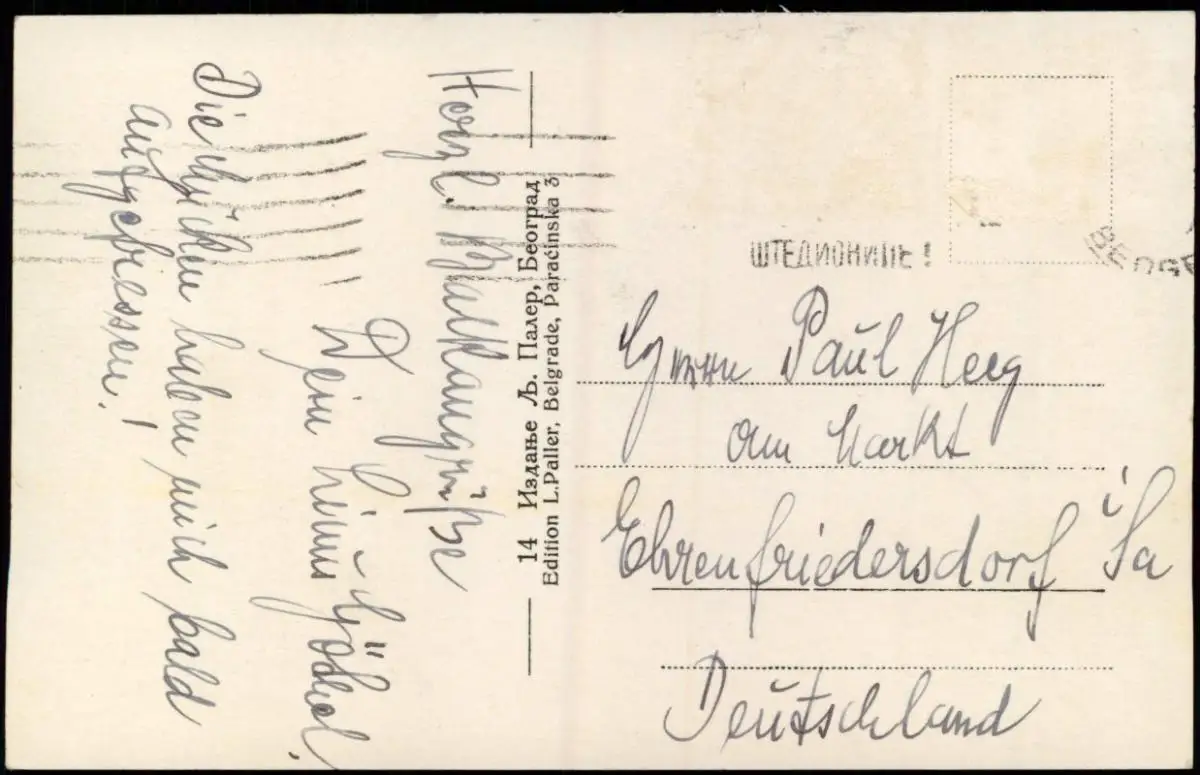 Herzl. Balkangrüße
Dein
Die Mücken haben mich bald
aufgefressen!
14 Издање Љ. Палер, Београд
Edition L.Paller, Belgrade, Paraćinska 3
ШТЕДИОНИЦЕ !
BEOG
Paul Heeg
am Markt
Ehrenfriedersdorf i Sa
Deutschland